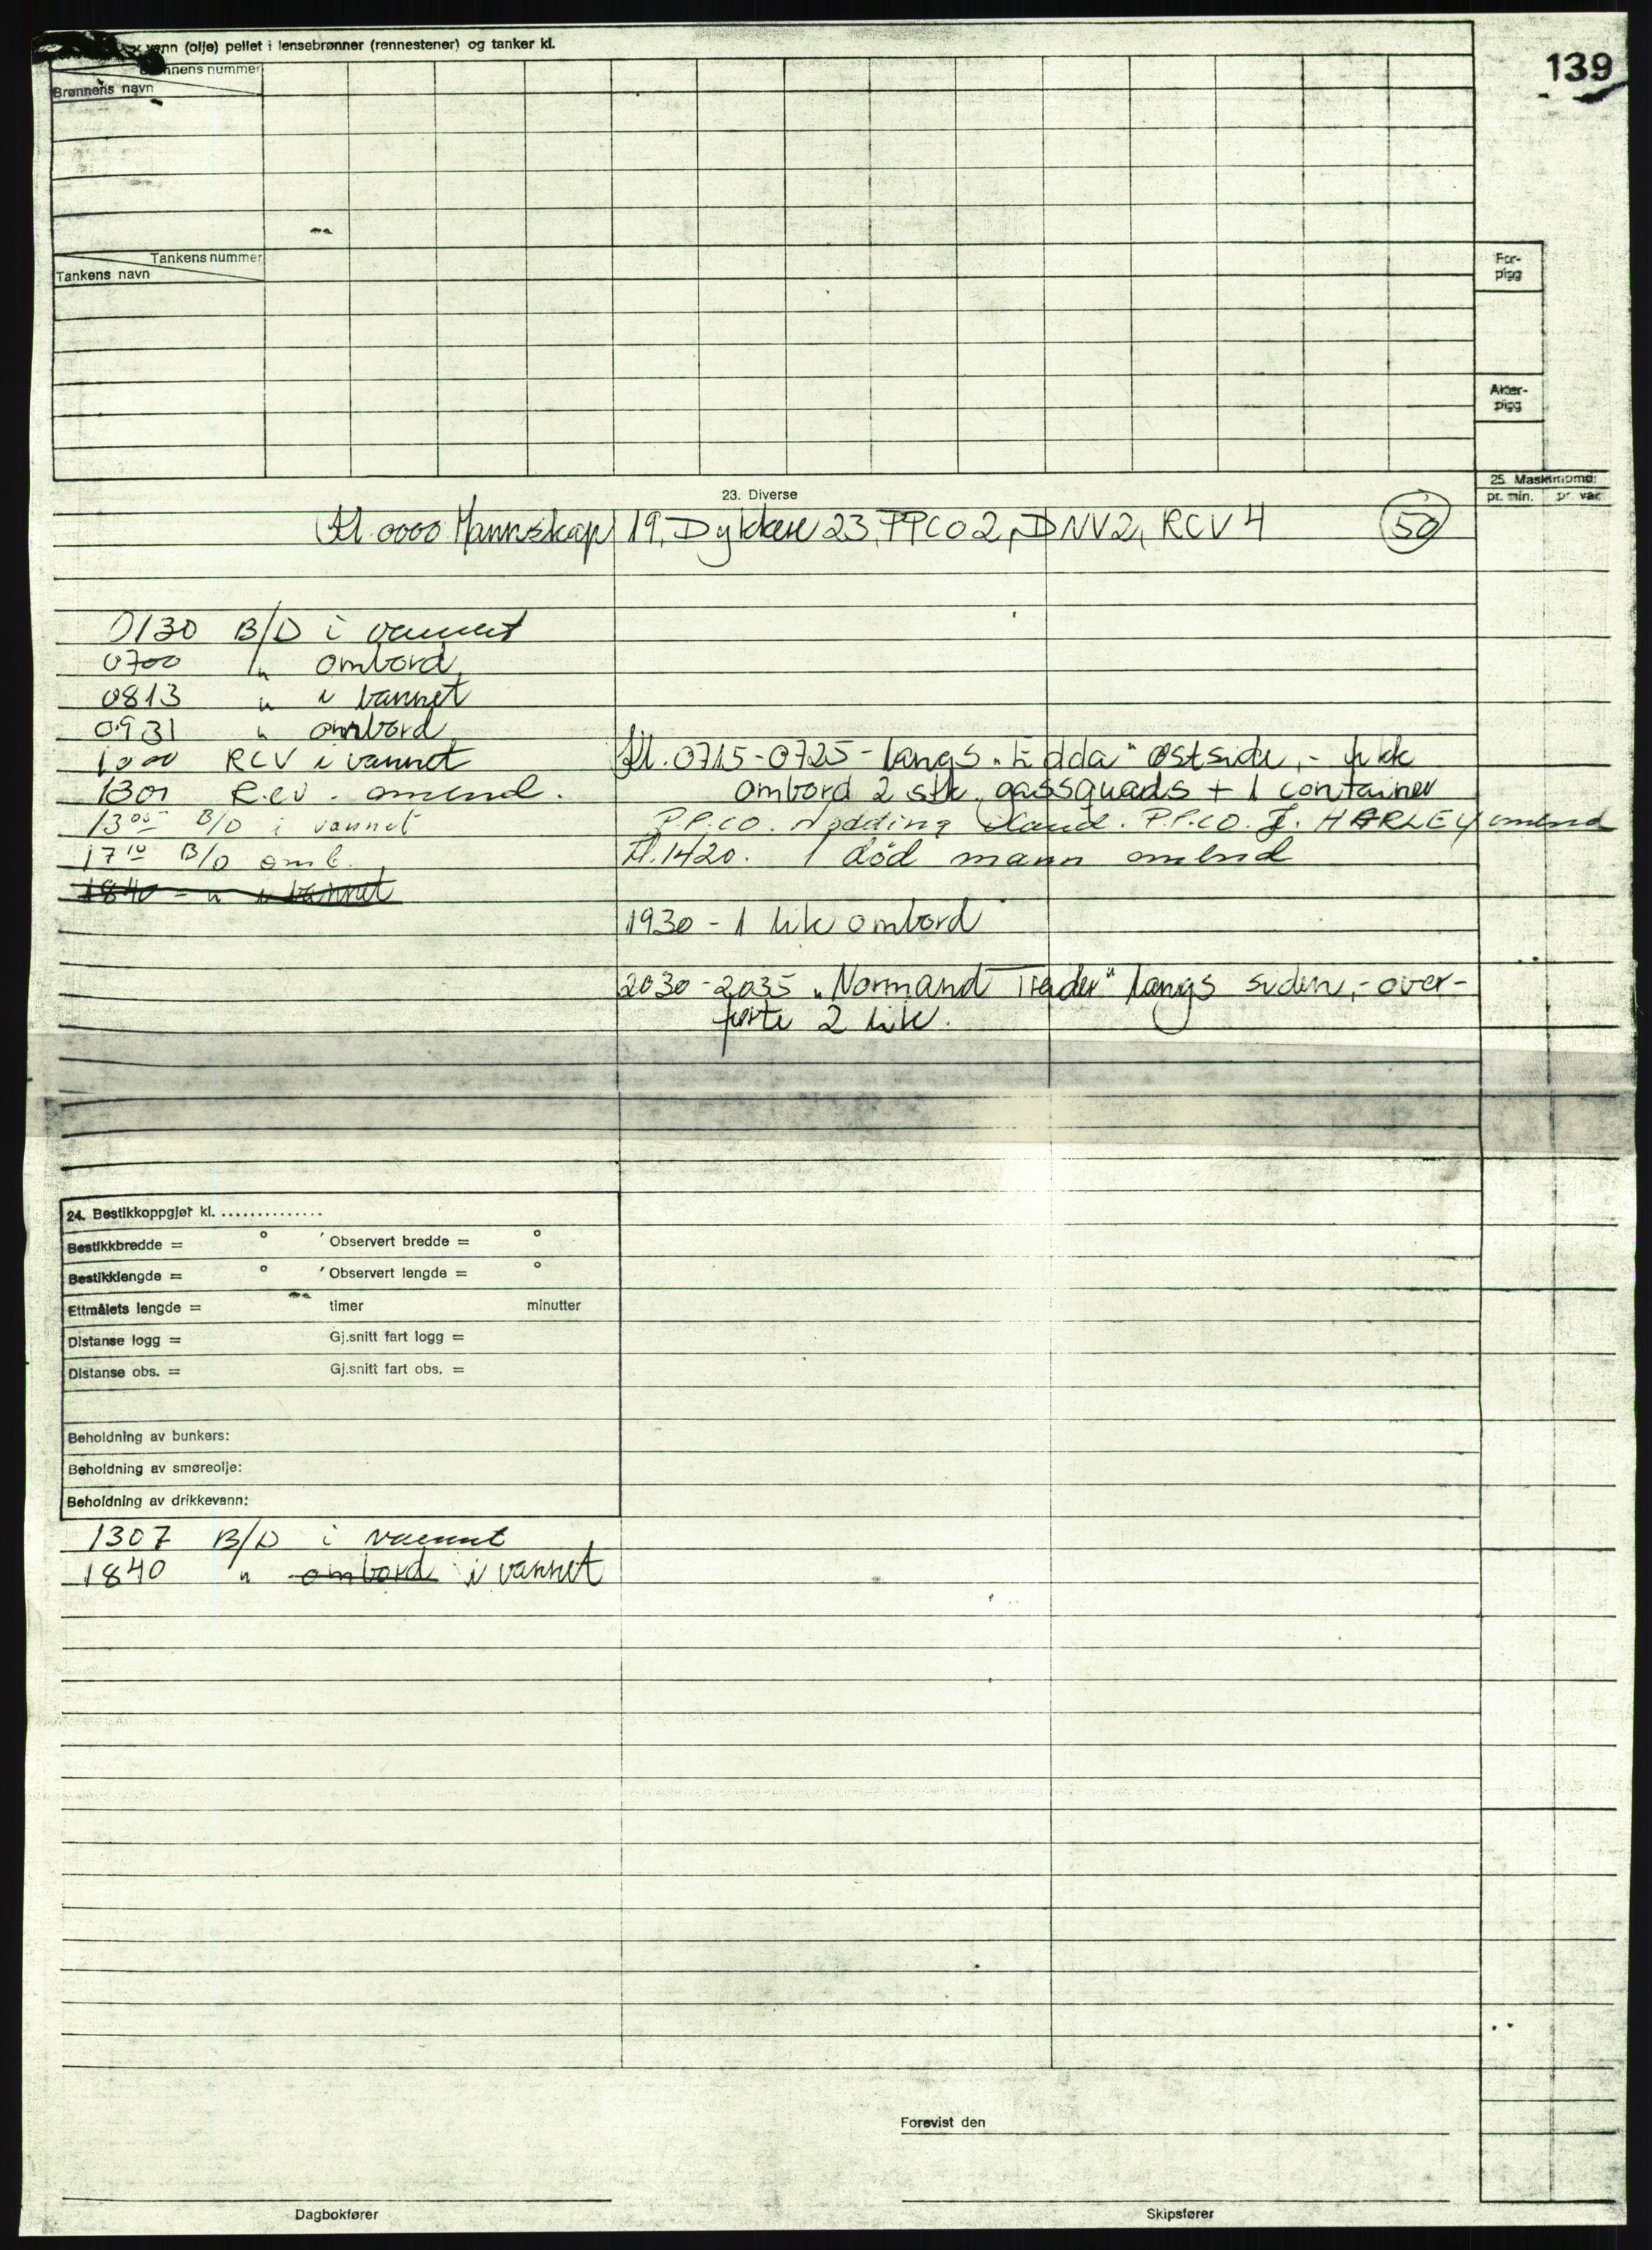 vann (olje) peilet i lensebrønner (rennestener) og tanker kl.
139
Brønnens nummer
Brønnens navn
Tankens nummer
Tankens navn
For-
pigg
Akter-
pigg
25. Maskinomdr.
pr. min. pr. vakt
23. Diverse
Kl. 0000 Mannskap 19, Dykkere 23, PPCO 2, DNV 2, RCV 4 50
0130 B/D i vannet
0700 " ombord
0813 " i vannet
0931 " ombord
1000 RCV i vannet
1301 R.cv. ombord.
13 05 B/D i vannet
17 10 B/D omb.
1840 - " i vannet
Kl. 0715-0725 - langs "Edda" østside, - fikk
ombord 2 stk. gassquads + 1 container
P.P.CO. iland. P.P.CO. J. HARLEY ombord
Kl. 1420. 1 død mann ombord
1930 - 1 lik ombord
2030 - 2035 "Normand Trader" langs siden, - over-
førte 2 lik.
24. Bestikkoppgjør kl. ..............
Bestikkbredde = ° ' Observert bredde = °
Bestikklengde = ° ' Observert lengde = °
Ettmålets lengde = timer minutter
Distanse logg = Gj.snitt fart logg =
Distanse obs. = Gj.snitt fart obs. =
Beholdning av bunkers:
Beholdning av smøreolje:
Beholdning av drikkevann:
1307 B/D i vannet
1840 " ombord i vannet
Forevist den
Dagbokfører
Skipsfører